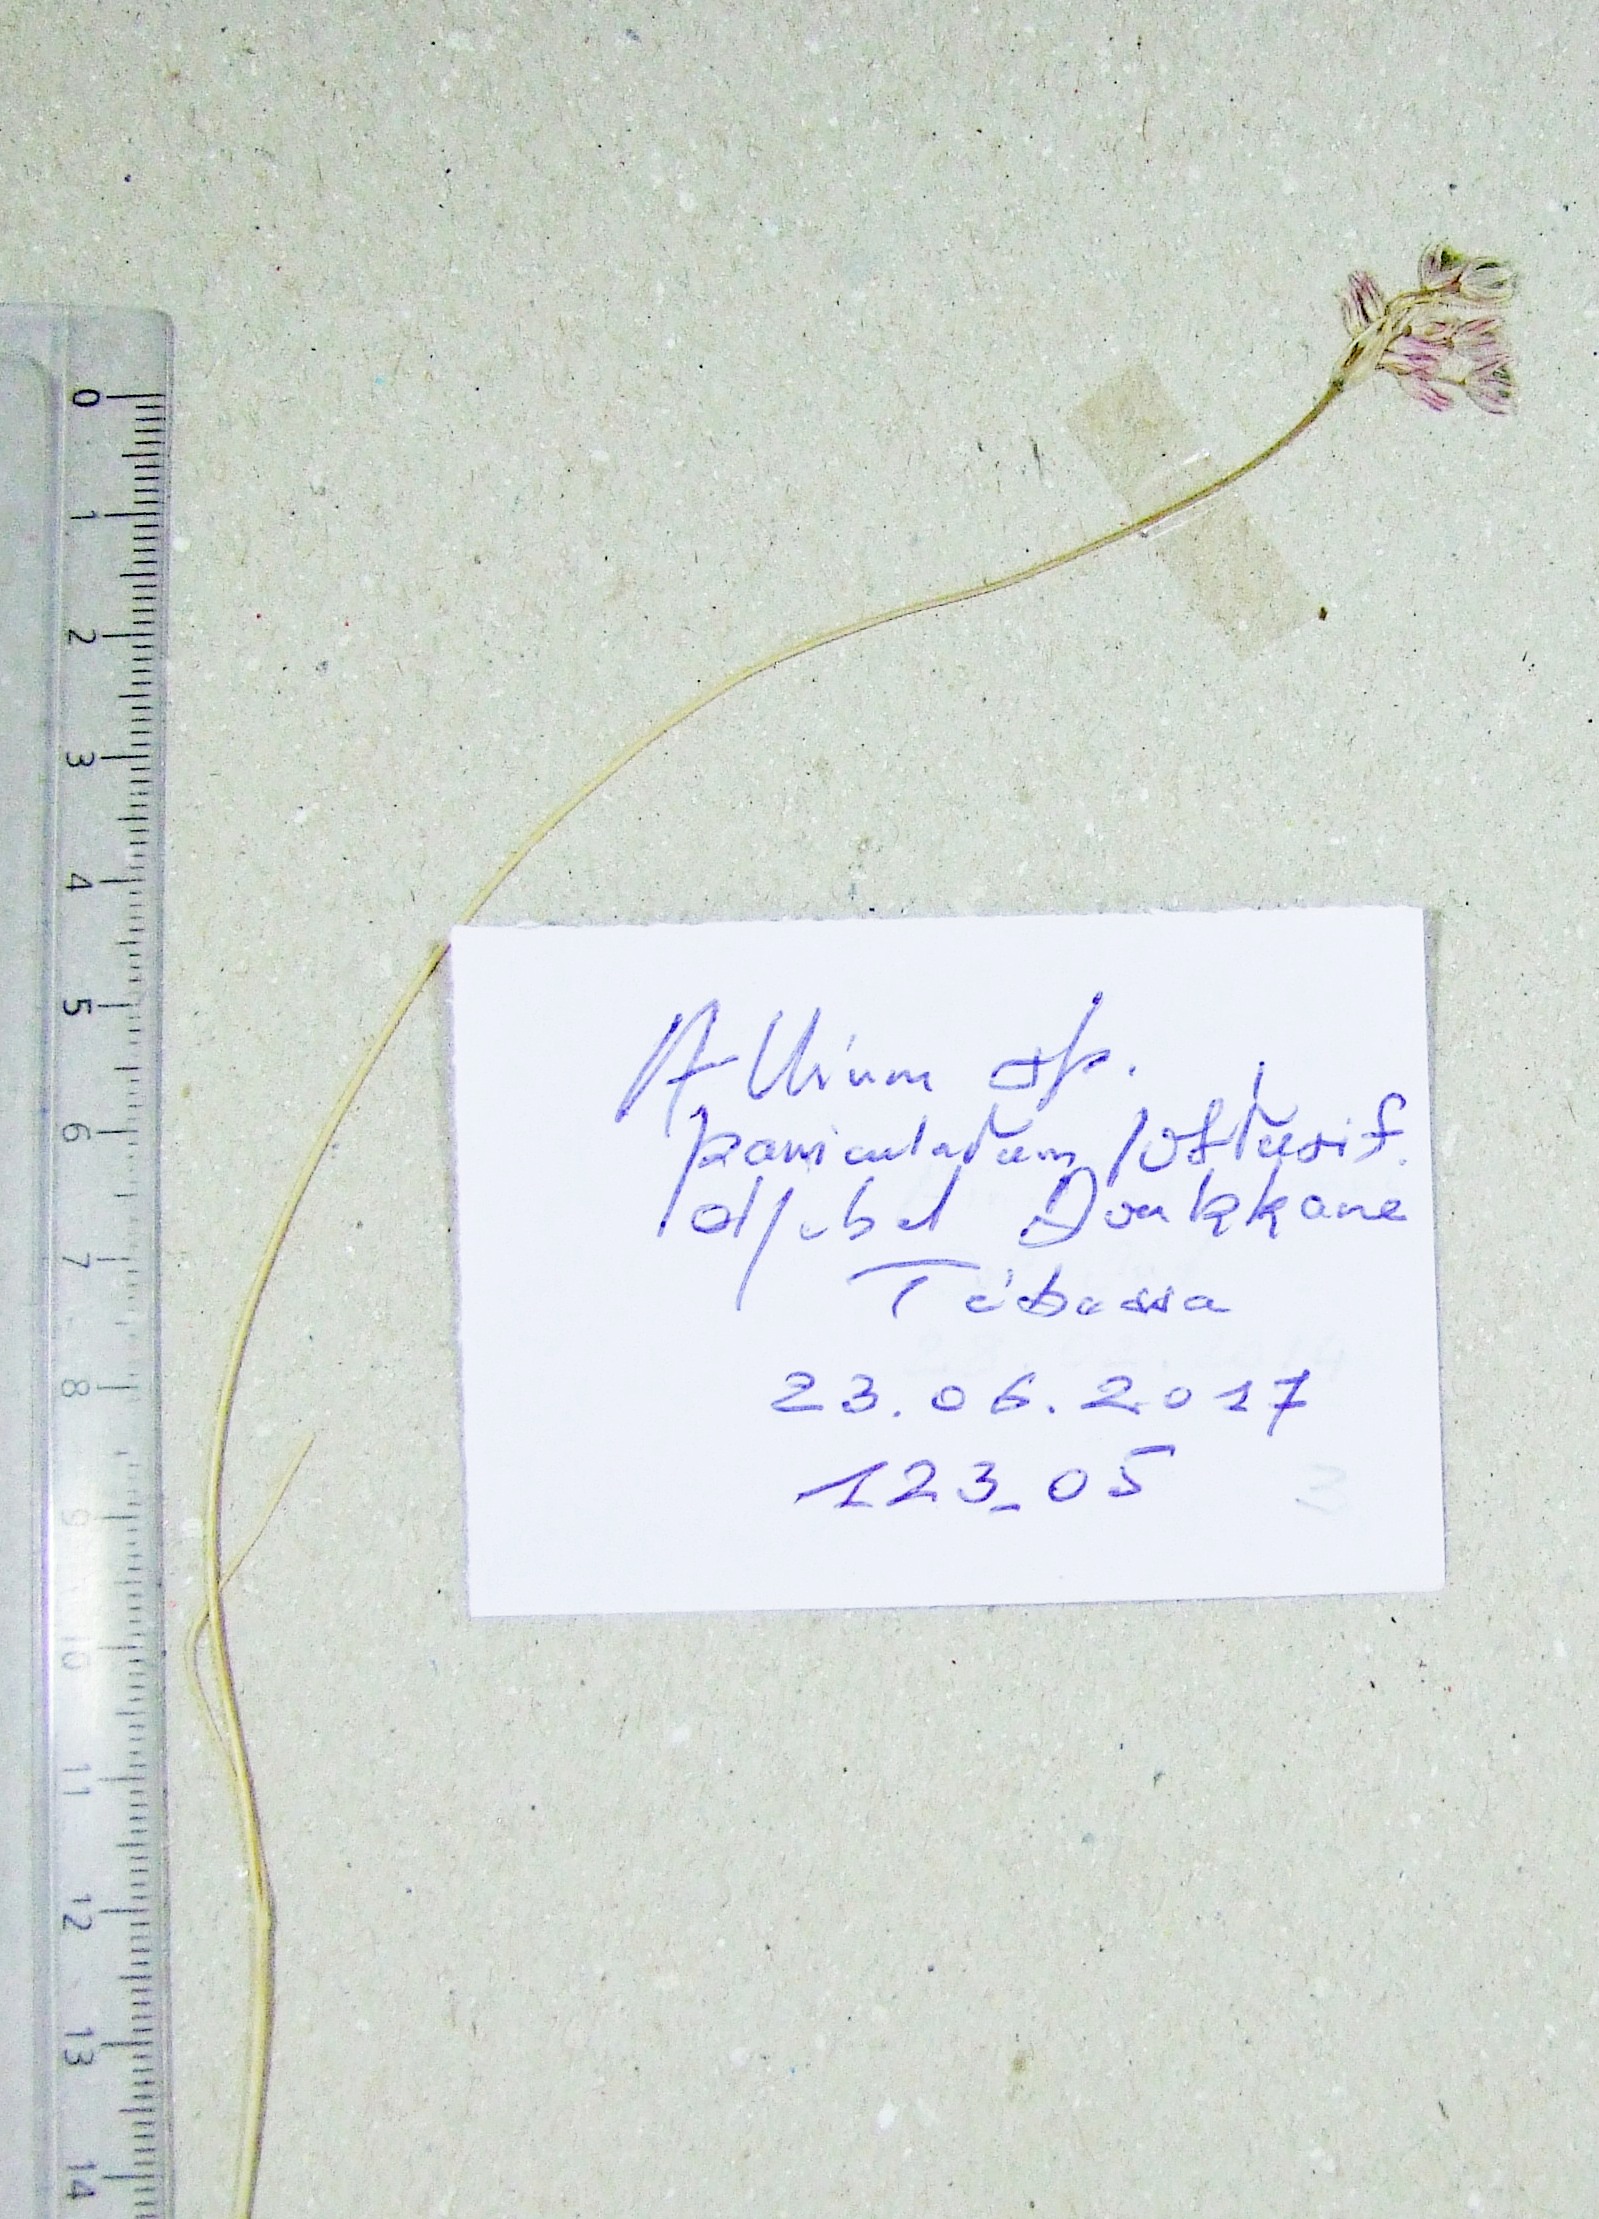 Allium sp.
paniculatum / obtusif.
djebel Doukkane
Tébessa
23.06.2017
123_05
3
0
1
2
3
4
5
6
7
8
9
10
11
12
13
14